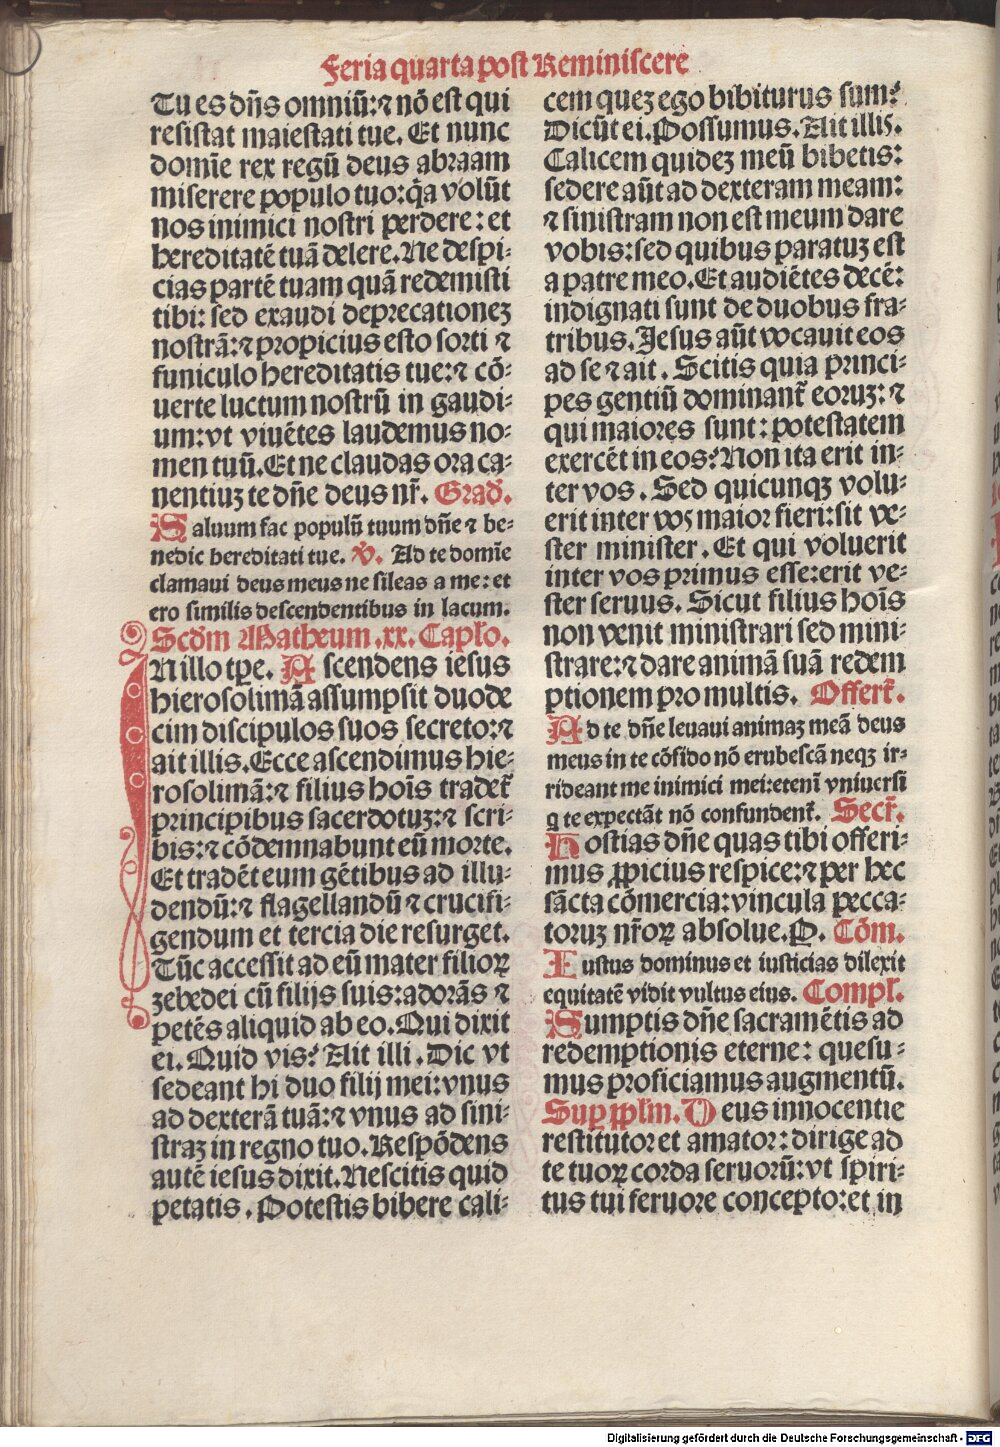 Feria quarta post Reminiscere
Tu es dn̄s omniū: ⁊ nō est qui
resistat maiestati tue. Et nunc
domīe rex regū deus abraam
miserere populo tuo: q̄a volūt
nos inimici nostri perdere: et
hereditatē tuā delere. Ne despi-
cias partē tuam quā redemisti
tibi: sed exaudi deprecationeꝫ
nostrā: ⁊ propicius esto sorti ⁊
funiculo hereditatis tue: ⁊ cō-
uerte luctum nostrū in gaudi-
um: vt viuētes laudemus no-
men tuū. Et ne claudas ora ca-
nentiuꝫ te dn̄e deus nr̄. Grad̄.
Saluum fac populū tuum dn̄e ⁊ be-
nedic hereditati tue. ℣. Ad te domīe
clamaui deus meus ne sileas a me: et
ero similis descendentibus in lacum.
Scd̄m Matheum .xx. Capl̄o.
IN illo tp̄e. Ascendens iesus
hierosolimā assumpsit duode
cim discipulos suos secreto: ⁊
ait illis. Ecce ascendimus hie-
rosolimā: ⁊ filius hoīs tradet᷑
principibus sacerdotuꝫ: ⁊ scri-
bis: ⁊ cōdemnabunt eū morte.
Et tradēt eum gētibus ad illu-
dendū: ⁊ flagellandū ⁊ crucifi-
gendum et tercia die resurget.
Tūc accessit ad eū mater filioꝝ
zebedei cū filijs suis: adorās ⁊
petēs aliquid ab eo. Qui dixit
ei. Quid vis? Ait illi. Dic vt
sedeant hi duo filij mei: vnus
ad dexterā tuā: ⁊ vnus ad sini-
straꝫ in regno tuo. Respōdens
autē iesus dixit. Nescitis quid
petatis. Potestis bibere cali-
cem queꝫ ego bibiturus sum?
Dicūt ei. Possumus. Ait illis.
Calicem quideꝫ meū bibetis:
sedere aūt ad dexteram meam:
⁊ sinistram non est meum dare
vobis: sed quibus paratuꝫ est
a patre meo. Et audiētes decē:
indignati sunt de duobus fra-
tribus. Jesus aūt vocauit eos
ad se ⁊ ait. Scitis quia princi-
pes gentiū dominant᷑ eoruꝫ: ⁊
qui maiores sunt: potestatem
exercēt in eos? Non ita erit in-
ter vos. Sed quicunqꝫ volu-
erit inter vos maior fieri: sit ve-
ster minister. Et qui voluerit
inter vos primus esse: erit ve-
ster seruus. Sicut filius hoīs
non venit ministrari sed mini-
strare: ⁊ dare animā suā redem
ptionem pro multis. Offert᷑.
Ad te dn̄e leuaui animaꝫ meā deus
meus in te cōfido nō erubescā neqꝫ ir-
rideant me inimici mei: etenī vniuersi
q te expectāt nō confundent᷑. Secr̄.
Hostias dn̄e quas tibi offeri-
mus ꝓpicius respice: ⁊ per hec
sācta cōmercia: vincula pecca-
toruꝫ nr̄oꝝ absolue. P. Cōm.
Iustus dominus et iusticias dilexit
equitatē vidit vultus eius. Compl̄.
Sumptis dn̄e sacramētis ad
redemptionis eterne: quesu-
mus proficiamus augmentū.
Suꝑ ppl̄m. Deus innocentie
restitutor et amator: dirige ad
te tuoꝝ corda seruorū: vt spiri-
tus tui feruore concepto: et in
Digitalisierung gefördert durch die Deutsche Forschungsgemeinschaft - DFG